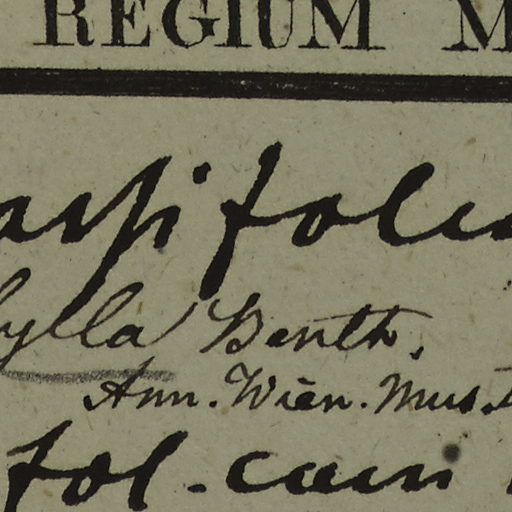 REGIUM M
ssifolia
ylla Benth.
Ann. Wien. Mus.
fol. cam